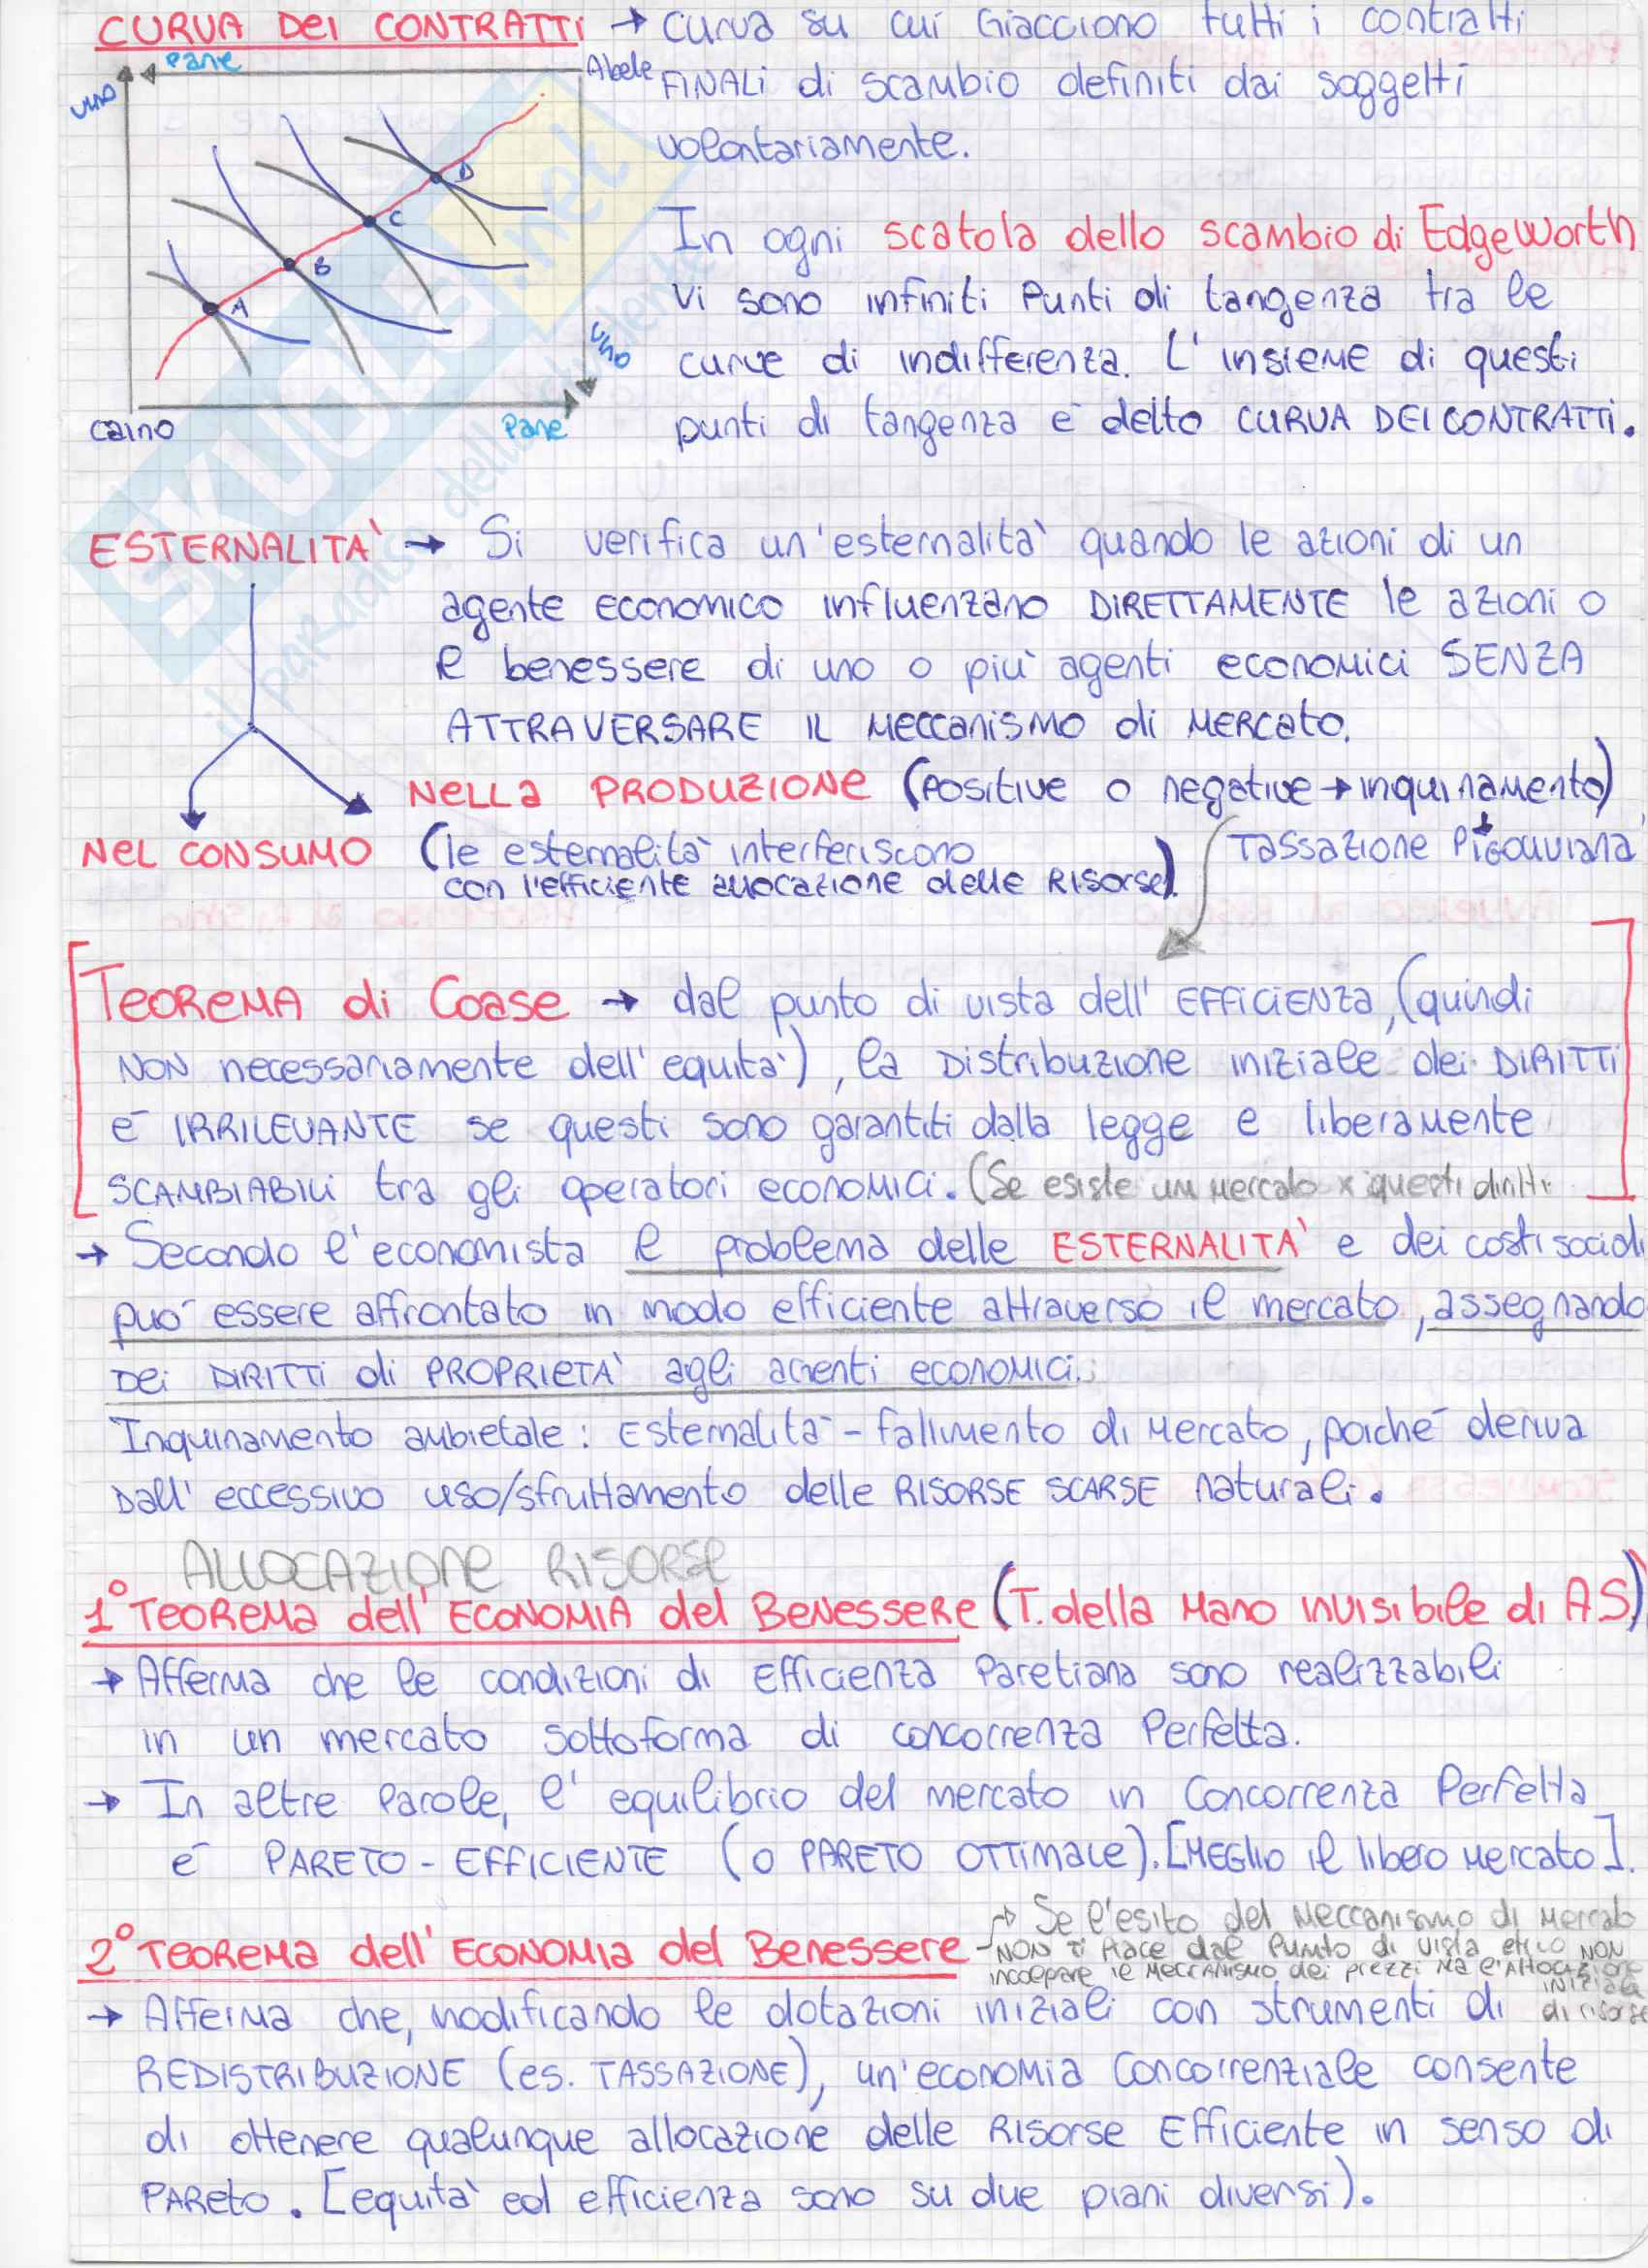 CURVA DEI CONTRATTI → curva su cui Giacciono tutti i contratti
Pane
Abele
FINALI di scambio definiti dai soggetti
volontariamente.
D
C
B
A
In ogni scatola dello scambio di EdgeWorth
vi sono infiniti Punti di tangenza tra le
curve di indifferenza. L'insieme di questi
punti di tangenza è detto CURVA DEI CONTRATTI.
Caino
Pane
SKUOLA.net
il paradiso dello studente
ESTERNALITA' → Si verifica un'esternalità quando le azioni di un
agente economico influenzano DIRETTAMENTE le azioni o
il benessere di uno o più agenti economici SENZA
ATTRAVERSARE IL MECCANISMO di MERCATO.
NELLA PRODUZIONE (Positive o negative → inquinamento)
NEL CONSUMO (le esternalità interferiscono
con l'efficiente allocazione delle Risorse).
Tassazione Pigouviana
TEOREMA di Coase → dal punto di vista dell'EFFICIENZA, (quindi
NON necessariamente dell'equità), la Distribuzione iniziale dei DIRITTI
è IRRILEVANTE se questi sono garantiti dalla legge e liberamente
SCAMBIABILI tra gli operatori economici. (Se esiste un mercato x questi diritti
→ Secondo l'economista il problema delle ESTERNALITA' e dei costi sociali
può essere affrontato in modo efficiente attraverso il mercato, assegnando
Dei DIRITTI di PROPRIETA' agli agenti economici.
Inquinamento ambietale: Esternalità - fallimento di Mercato, poiché deriva
Dall'eccessivo uso/sfruttamento delle RISORSE SCARSE naturali.
ALLOCAZIONE RISORSE
1° TEOREMA dell'ECONOMIA del BENESSERE (T. della Mano invisibile di AS)
→ Afferma che le condizioni di Efficienza Paretiana sono realizzabili
in un mercato sottoforma di concorrenza Perfetta.
→ In altre Parole, l'equilibrio del mercato in Concorrenza Perfetta
è PARETO-EFFICIENTE (o PARETO OTTIMALE). [MEGLIO il libero Mercato].
→ Se l'esito del Meccanismo di Mercato
2° TEOREMA dell'ECONOMIA del Benessere - NON ti piace dal Punto di vista etico NON
incolpare il MECCANISMO dei prezzi MA l'Allocazione
iniziale
→ Afferma che, modificando le dotazioni iniziali con strumenti di
di risorse
REDISTRIBUZIONE (es. TASSAZIONE), un'economia Concorrenziale consente
di ottenere qualunque allocazione delle Risorse Efficiente in senso di
PARETO. [equità ed efficienza sono su due piani diversi).